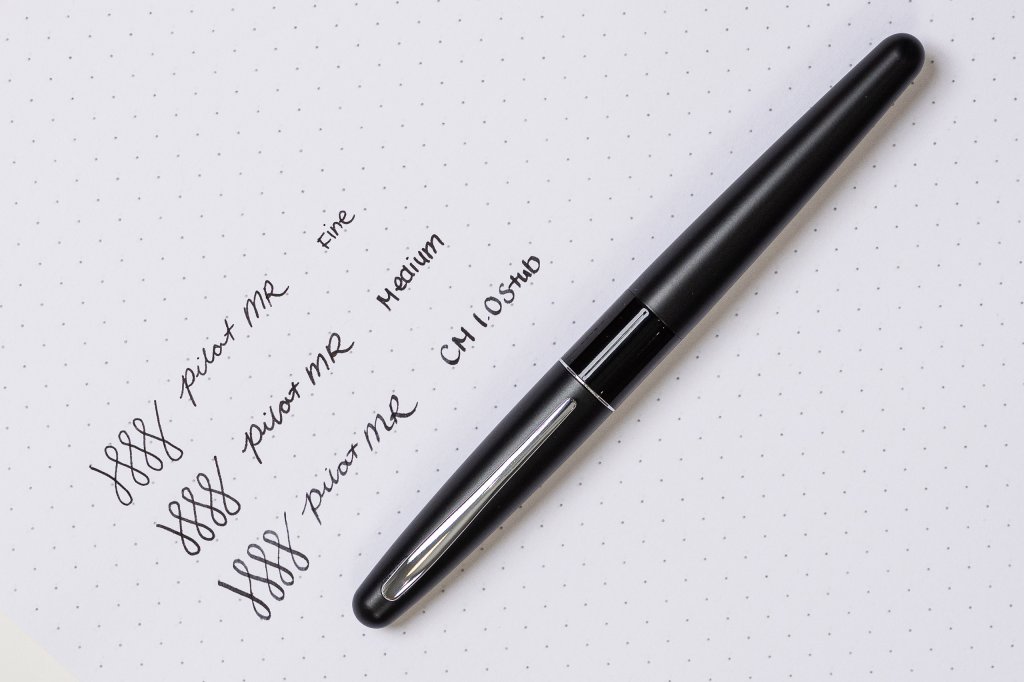 pilot MR Fine
pilot MR Medium
pilot MR CM 1.0 Stub